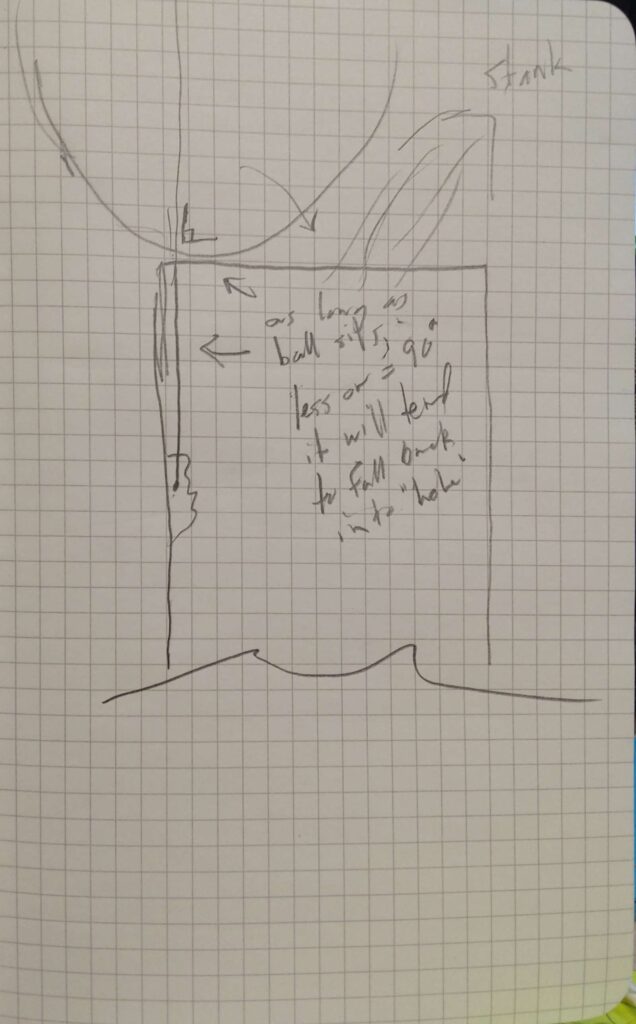 stank
as long as
ball sits, 90°
less or =
it will tend
to fall back
into "hole"